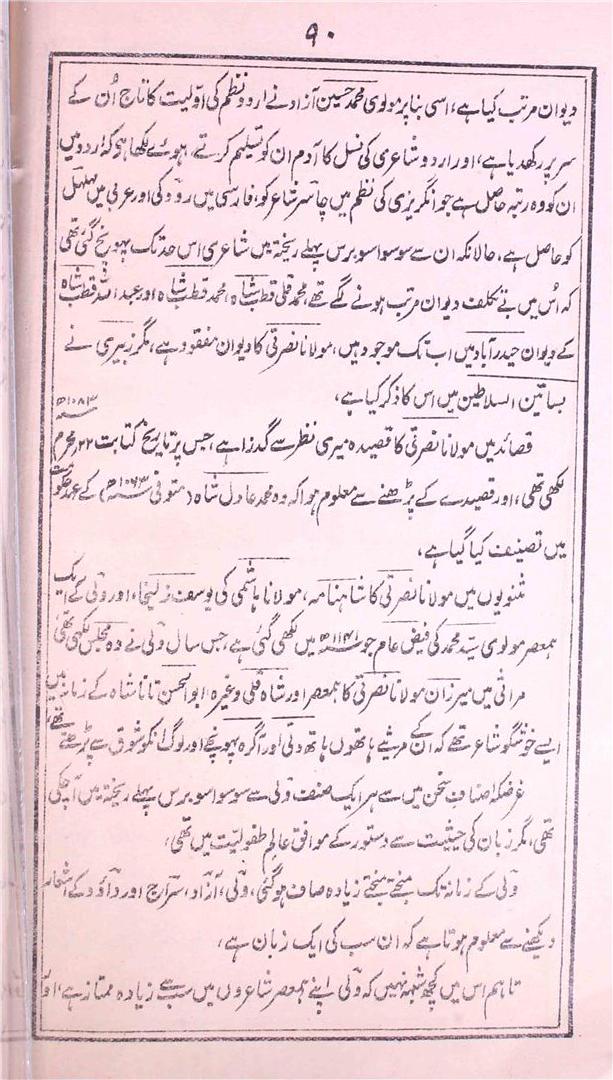 ۹۰
دیوان مرتب کیا ہے، اسی بنا پر مولوی محمد حسین آزاد نے اردو نظم کی اوّلیت کا تاج اُن کے
سر پر رکھدیا ہے، اور اردو شاعری کی نسل کا آدم ان کو تسلیم کرتے ہوئے لکھا ہی کہ اردو میں
ان کو وہ رتبہ حاصل ہے جو انگریزی کی نظم میں چاسر شاعر کو، فارسی میں رودکی اور عربی میں مہلہل
کو حاصل ہے، حالانکہ ان سے سو سوا سو برس پہلے ریختہ میں شاعری اس حد تک پہونچ گئی تھی
کہ اُس میں بے تکلف دیوان مرتب ہونے لگے تھے، محمد قلی قطب شاہ، محمد قطب شاہ اور عبد اللہ قطب شاہ
کے دیوان حیدرآباد میں اب تک موجود ہیں، مولانا نصرتی کا دیوان مفقود ہے، مگر زبیری نے
بساتین السلاطین میں اس کا ذکر کیا ہے،
قصائد میں مولانا نصرتی کا قصیدہ میری نظر سے گذرا ہے، جس پر تاریخ کتابت ۲۲ محرم ۱۰۸۳ھ
لکھی تھی، اور قصیدے کے پڑھنے سے معلوم ہوا کہ وہ محمد عادل شاہ (متوفی ۱۰۶۳ھ) کے عہد حکومت
میں تصنیف کیا گیا ہے،
مثنویوں میں مولانا نصرتی کا شاہنامہ، مولانا ہاشمی کی یوسف زلیخا، اور ولی کے ایک
ہمعصر مولوی سید محمد کی فیض عام جو ۱۱۴۱ھ میں لکھی گئی ہے، جس سال ولی نے دہ مجلس لکھی تھی
مراثی میں میرزان مولانا نصرتی کا ہمعصر اور شاہ قلی وغیرہ ابو الحسن تانا شاہ کے زمانہ میں
ایسے خوشگو شاعر تھے کہ ان کے مرثیے ہاتھوں ہاتھ دلی اور آگرہ پہونچے اور لوگ انکو شوق سے پڑھتے تھے،
غرضکہ اصناف سخن میں سے ہر ایک صنف ولی سے سو سوا سو برس پہلے ریختہ میں آچکی
تھی، مگر زبان کی حیثیت سے دستور کے موافق عالم طفولیت میں تھی،
ولی کے زمانہ تک منجتے منجتے زیادہ صاف ہوگئی، ولی، آزاد، سراج اور داؤد کے اشعار
دیکھنے سے معلوم ہوتا ہے کہ ان سب کی ایک زبان ہے،
تاہم اس میں کچھ شبہ نہیں کہ ولی اپنے ہمعصر شاعروں میں سب سے زیادہ ممتاز ہے، اور